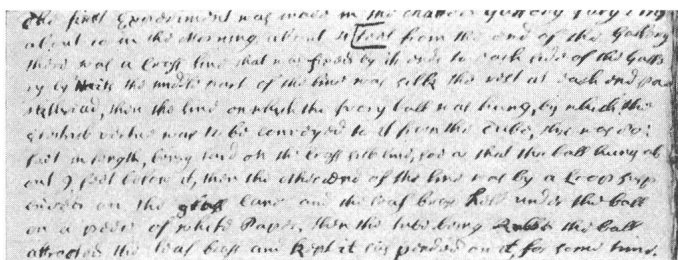 The first Experiment was made in the Gallery July
about 10 in the Morning about 4 feet from the end of the Gallery
there was a Cross line that was fixed by its ends to each side of the Galle
ry by the middle part of the line was silk the rest at each end pac
kthread, then the line on which the Ivory ball was hung, by which the
Electrick virtue was to be conveyed to it from the Tube, this was 80
feet in length, being laid on the Cross silk line, soe as that the ball hung ab
out 9 feet below it, then the other end of the line was by a Loop susp
ended on the glass Cane and the leaf brass held under the ball
on a piece of white Paper, then the tube being the ball
attracted the leaf brass and kept it suspended on it, for some time.